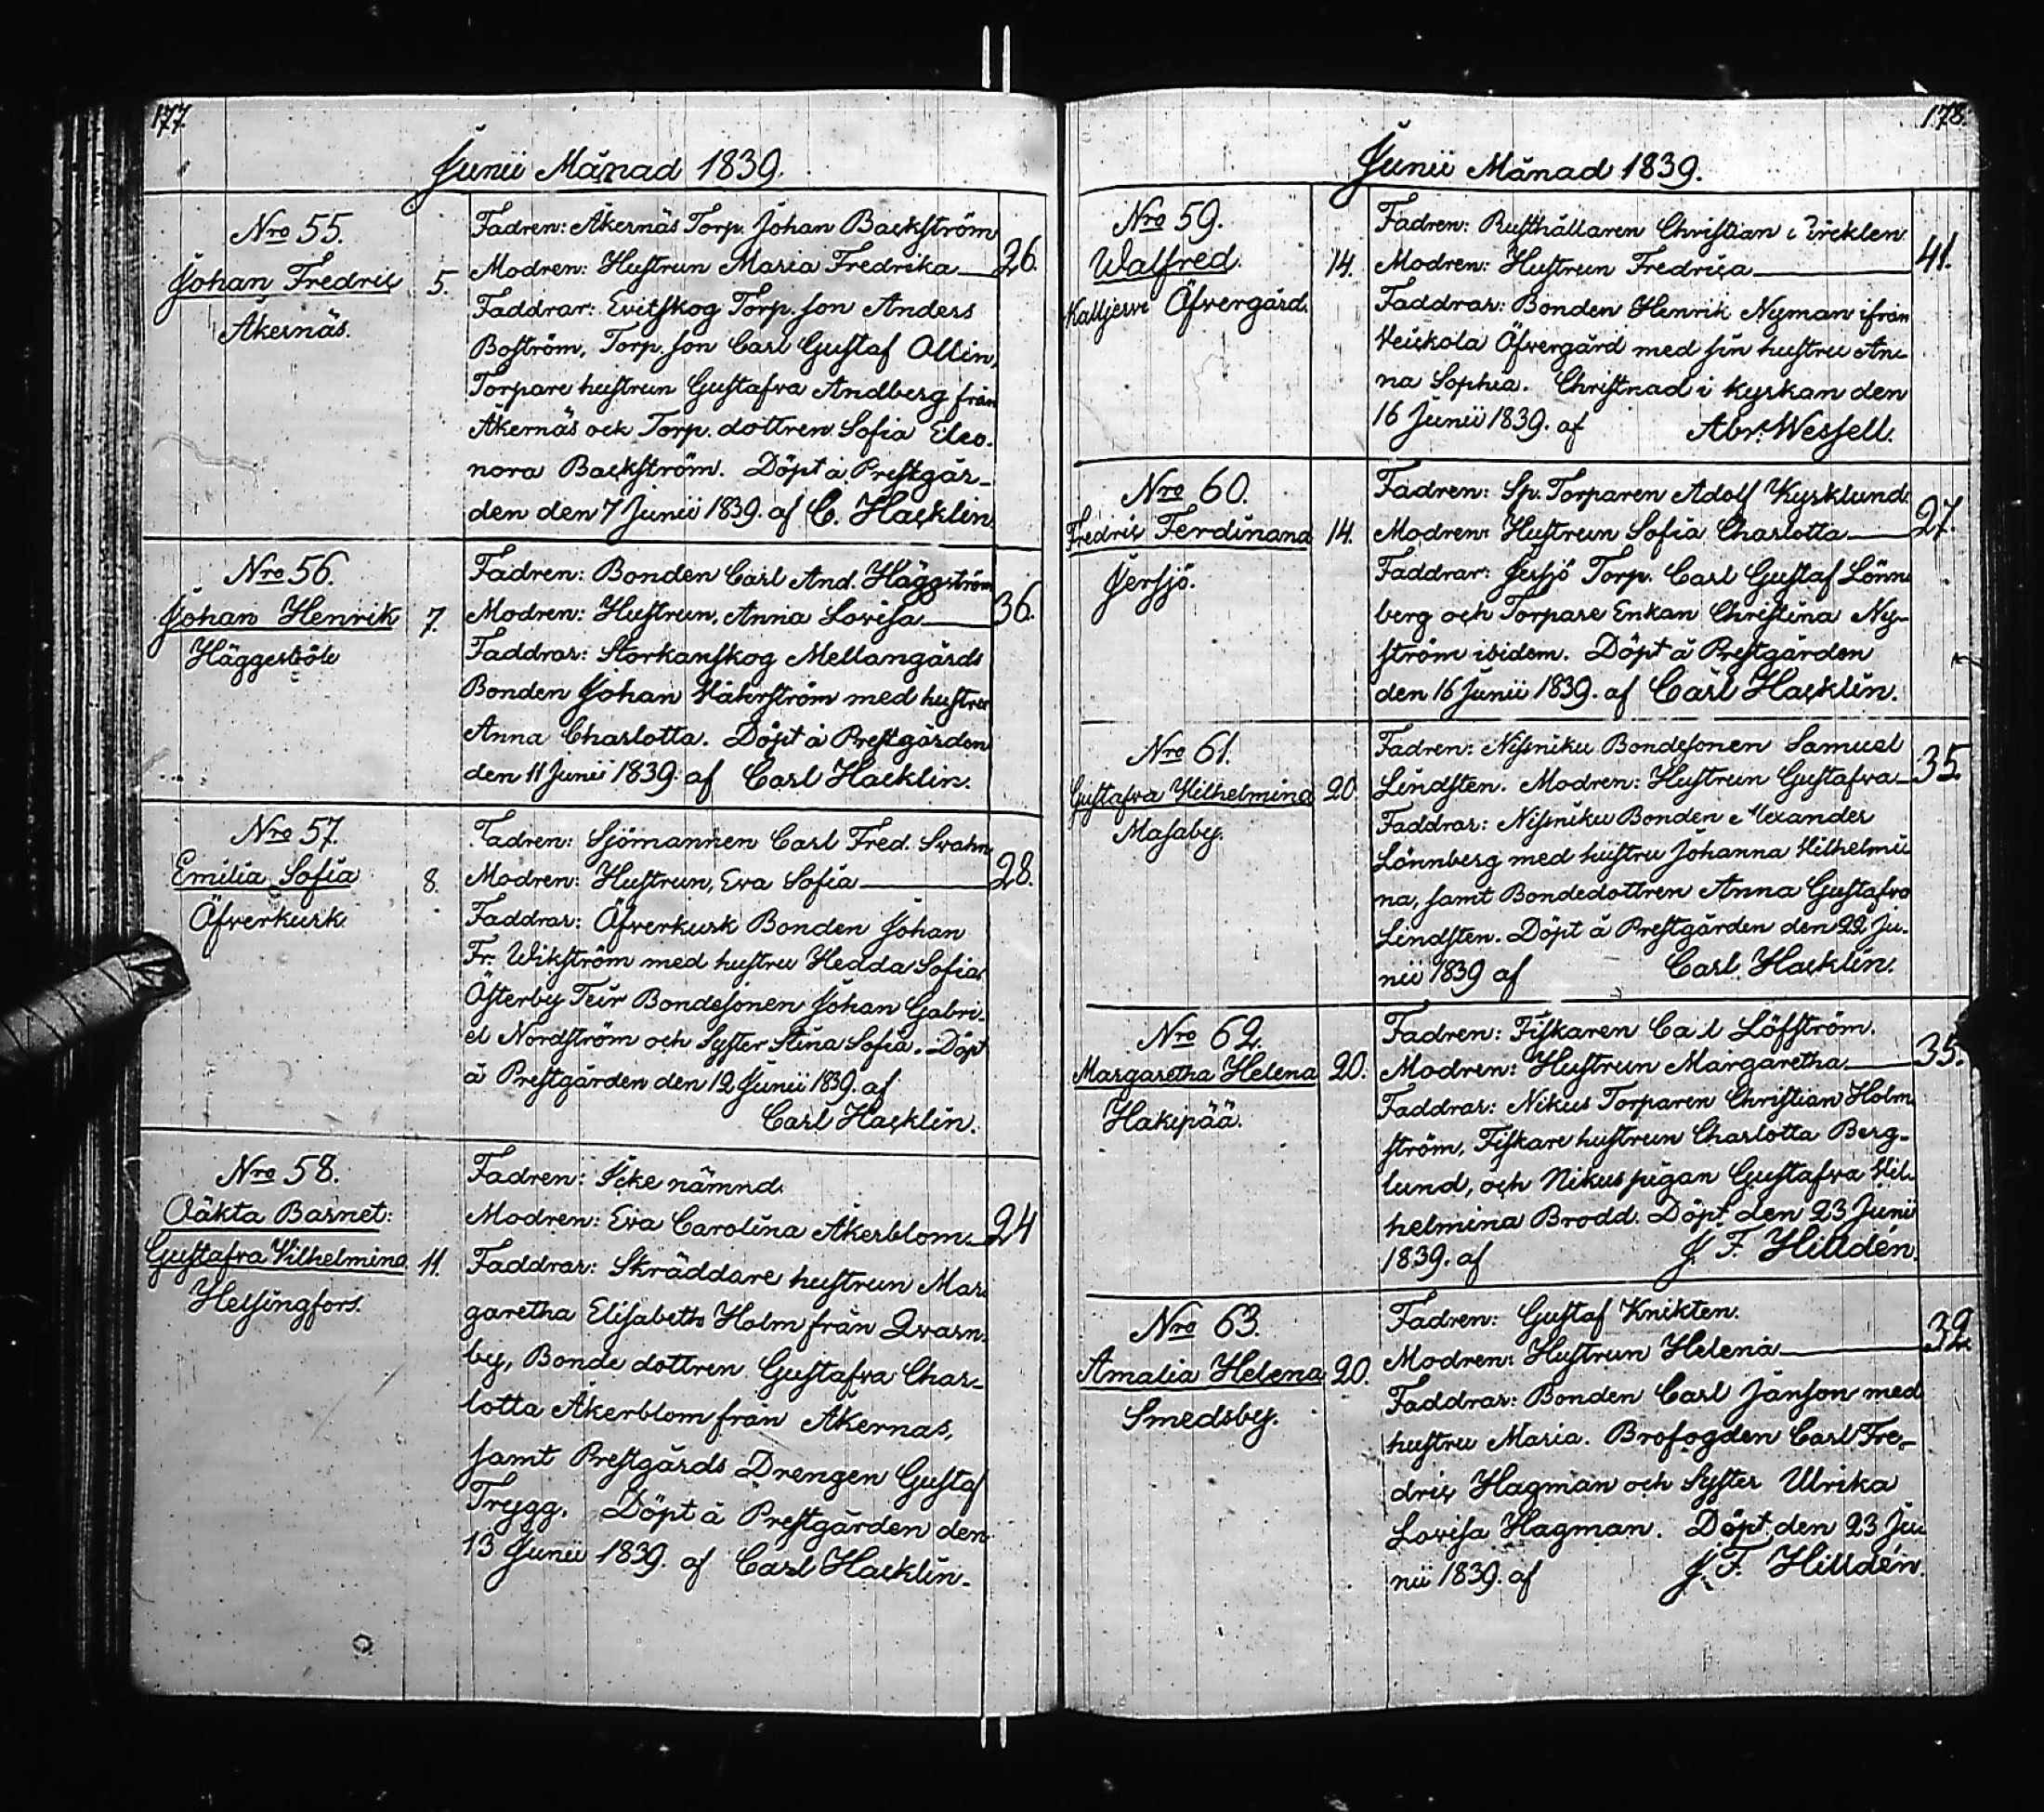 177.
Junii Månad 1839.
Nro 55.
Johan Fredric
Åkernäs.
5.
Fadren: Åkernäs Torp. Johan Backström
Modren: Hustrun Maria Fredrika
26.
Faddrar: Evitskog Torp. son Anders
Boström, Torp. son Carl Gustaf Ollin,
Torpare hustrun Gustafva Andberg från
Åkernäs och Torp. dottren Sofia Eleo-
nora Backström. Döpt å Prestgår-
den den 7 Junii 1839. af C. Hacklin.
Nro 56.
Johan Henrik
7.
Fadren: Bonden Carl And. Häggström
Modren: Hustrun, Anna Lovisa
36.
Faddrar: Storkanskog Mellangårds
Bonden Johan med hustru
Anna Charlotta. Döpt å Prestgården
den 11 Junii 1839. af Carl Hacklin.
Nro 57.
Emilia Sofia
Öfverkurk.
8.
Fadren: Sjömannen Carl Fred. Svahn
Modren: Hustrun, Eva Sofia
28.
Faddrar: Öfverkurk Bonden Johan
Fr. Wikström med hustru Hedda Sofia,
Österby Teir Bondesonen Johan Gabri-
el Nordström och Syster Stina Sofia. Döpt
å Prestgården den 12 Junii 1839. af
Carl Hacklin.
Nro 58.
Oäkta Barnet:
Gustafva Vilhelmina
Helsingfors.
11.
Fadren: Icke nämnd.
Modren: Eva Carolina Åkerblom.
24
Faddrar: Skräddare hustrun Mar-
garetha Elisabeth Holm från Qvarn-
by, Bonde dottren Gustafva Char-
lotta Åkerblom från Åkernäs,
samt Prestgårds Drengen Gustaf
Trygg. Döpt å Prestgården den
13 Junii 1839. af Carl Hacklin.
178.
Junii Månad 1839.
Nro 59.
Walfred.
Kalljervi Öfvergård.
14.
Fadren: Rusthållaren Christian
Modren: Hustrun Fredrica
41.
Faddrar: Bonden Henrik Nyman ifrån
Veickola Öfvergård med sin hustru An-
na Sophia. Christnad i kyrkan den
16 Junii 1839. af Abr. Wessell.
Nro 60.
Fredric Ferdinand
Jersjö.
14.
Fadren: Sp. Torparen Adolf Kyrklund.
Modren: Hustrun Sofia Charlotta
27.
Faddrar: Jersjö Torp. Carl Gustaf Lönn-
berg och Torpare Enkan Christina Ny-
ström ibidem. Döpt å Prestgården
den 16 Junii 1839. af Carl Hacklin.
Nro 61.
Gustafva Wilhelmina
Masaby.
20.
Fadren: Nissniku Bondesonen Samuel
Lindsten. Modren: Hustrun Gustafva
35.
Faddrar: Nissniku Bonden Alexander
Lönnberg med hustru Johanna Wilhelmi-
na, samt Bondedottren Anna Gustafva
Lindsten. Döpt å Prestgården den 22 Ju-
nii 1839 af Carl Hacklin.
Nro 62.
Margaretha Helena
Hakipää.
20.
Fadren: Fiskaren Carl Löfström.
Modren: Hustrun Margaretha
35.
Faddrar: Nikus Torparen Christian Holm-
ström, Fiskare hustrun Charlotta Berg-
lund, och Nikus pigan Gustafva Wil-
helmina Brodd. Döpt den 23 Junii
1839. af J. F. Hilldén.
Nro 63.
Amalia Helena
Smedsby.
20.
Fadren: Gustaf Knikten.
Modren: Hustrun Helena
32
Faddrar: Bonden Carl Janson med
hustru Maria. Brofogden Carl Fre-
dric Hagman och Syster Ulrika
Lovisa Hagman. Döpt den 23 Ju-
nii 1839. af J. F. Hilldén.